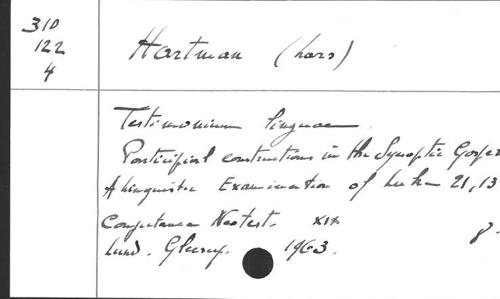 310
122
4
Hartman (Lars)
Testimonium linguae
Participial constructions in the Synoptic Gospe
A linguistic Examination of Luke 21,13
Coniectanea Neotest. XIX
Lund. Gleerup. 1963. 8.